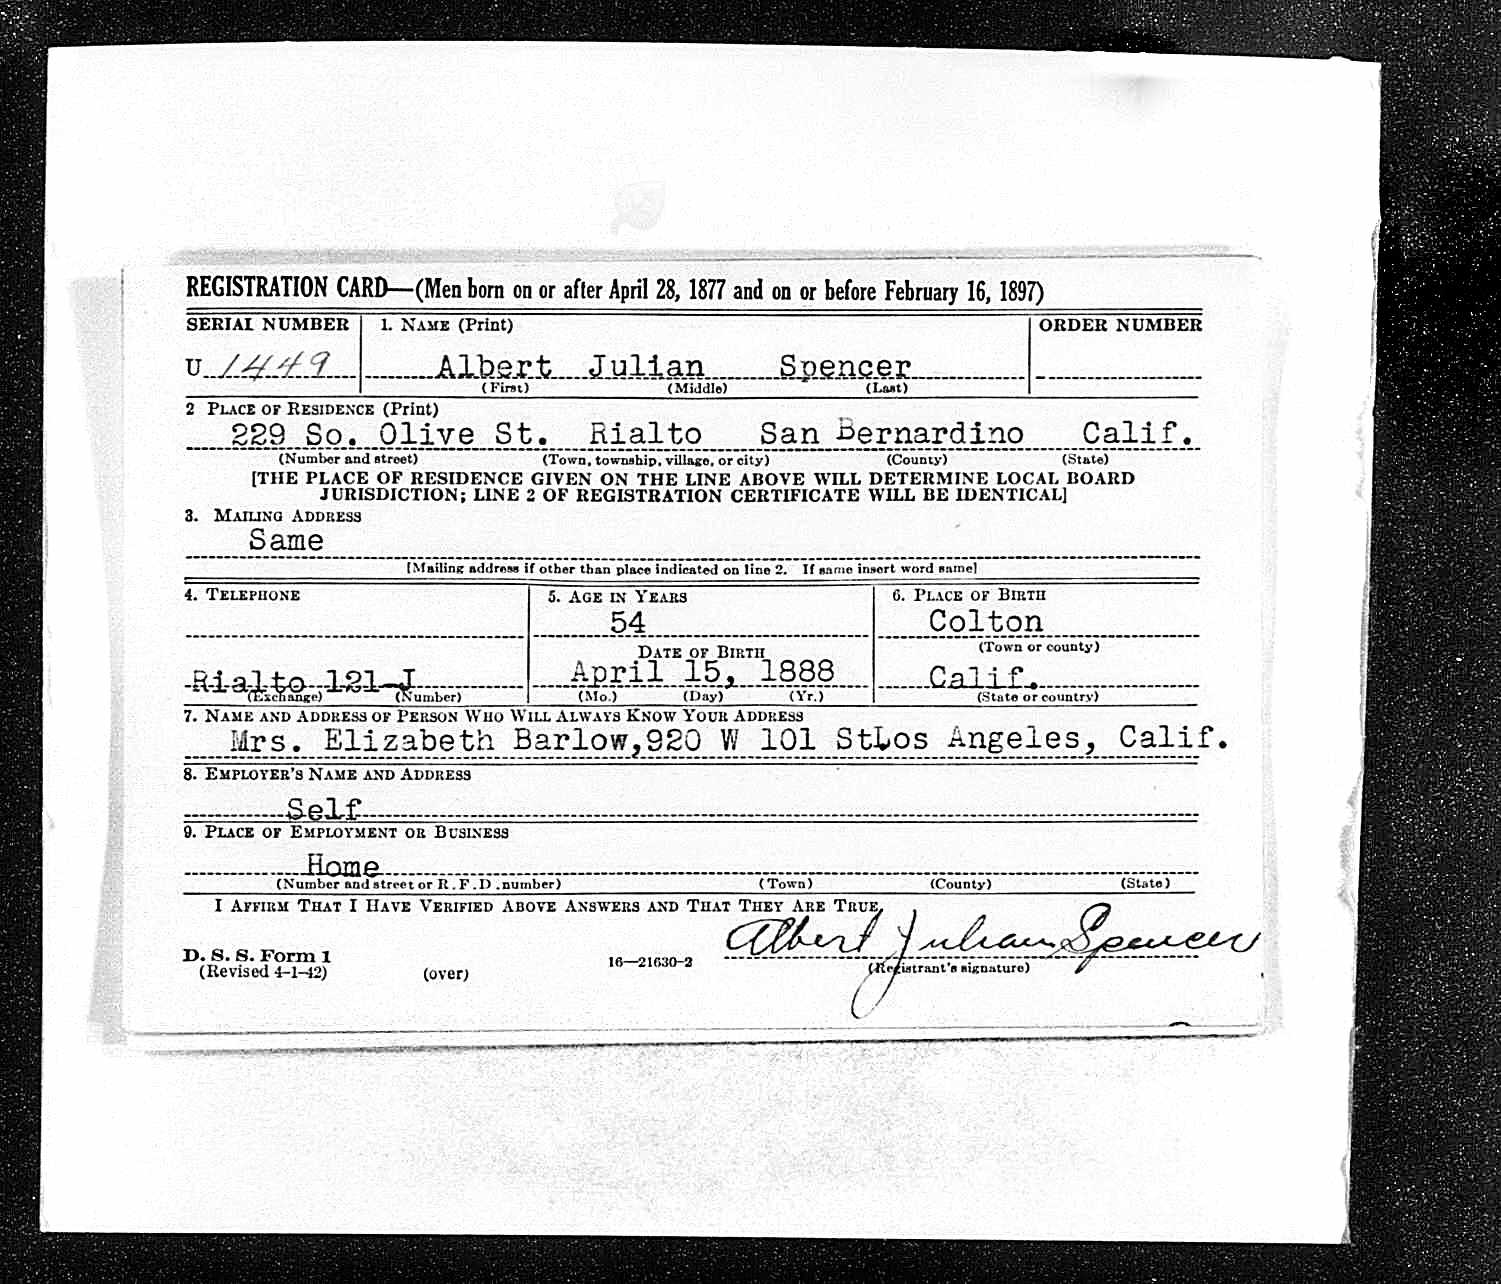 REGISTRATION CARD—(Men born on or after April 28, 1877 and on or before February 16, 1897)
SERIAL NUMBER 1. NAME (Print) ORDER NUMBER
U 1449 Albert Julian Spencer
(First) (Middle) (Last)
2 PLACE OF RESIDENCE (Print)
229 So. Olive St. Rialto San Bernardino Calif.
(Number and street) (Town, township, village, or city) (County) (State)
[THE PLACE OF RESIDENCE GIVEN ON THE LINE ABOVE WILL DETERMINE LOCAL BOARD
JURISDICTION; LINE 2 OF REGISTRATION CERTIFICATE WILL BE IDENTICAL]
3. MAILING ADDRESS
Same
[Mailing address if other than place indicated on line 2. If same insert word same]
4. TELEPHONE 5. AGE IN YEARS 6. PLACE OF BIRTH
54 Colton
DATE OF BIRTH (Town or county)
Rialto 121-J April 15, 1888 Calif.
(Exchange) (Number) (Mo.) (Day) (Yr.) (State or country)
7. NAME AND ADDRESS OF PERSON WHO WILL ALWAYS KNOW YOUR ADDRESS
Mrs. Elizabeth Barlow,920 W 101 StLos Angeles, Calif.
8. EMPLOYER'S NAME AND ADDRESS
Self
9. PLACE OF EMPLOYMENT OR BUSINESS
Home
(Number and street or R.F.D. number) (Town) (County) (State)
I AFFIRM THAT I HAVE VERIFIED ABOVE ANSWERS AND THAT THEY ARE TRUE.
Albert Julian Spencer
D. S. S. Form 1
(Revised 4-1-42) (over) 16—21630-2 (Registrant's signature)